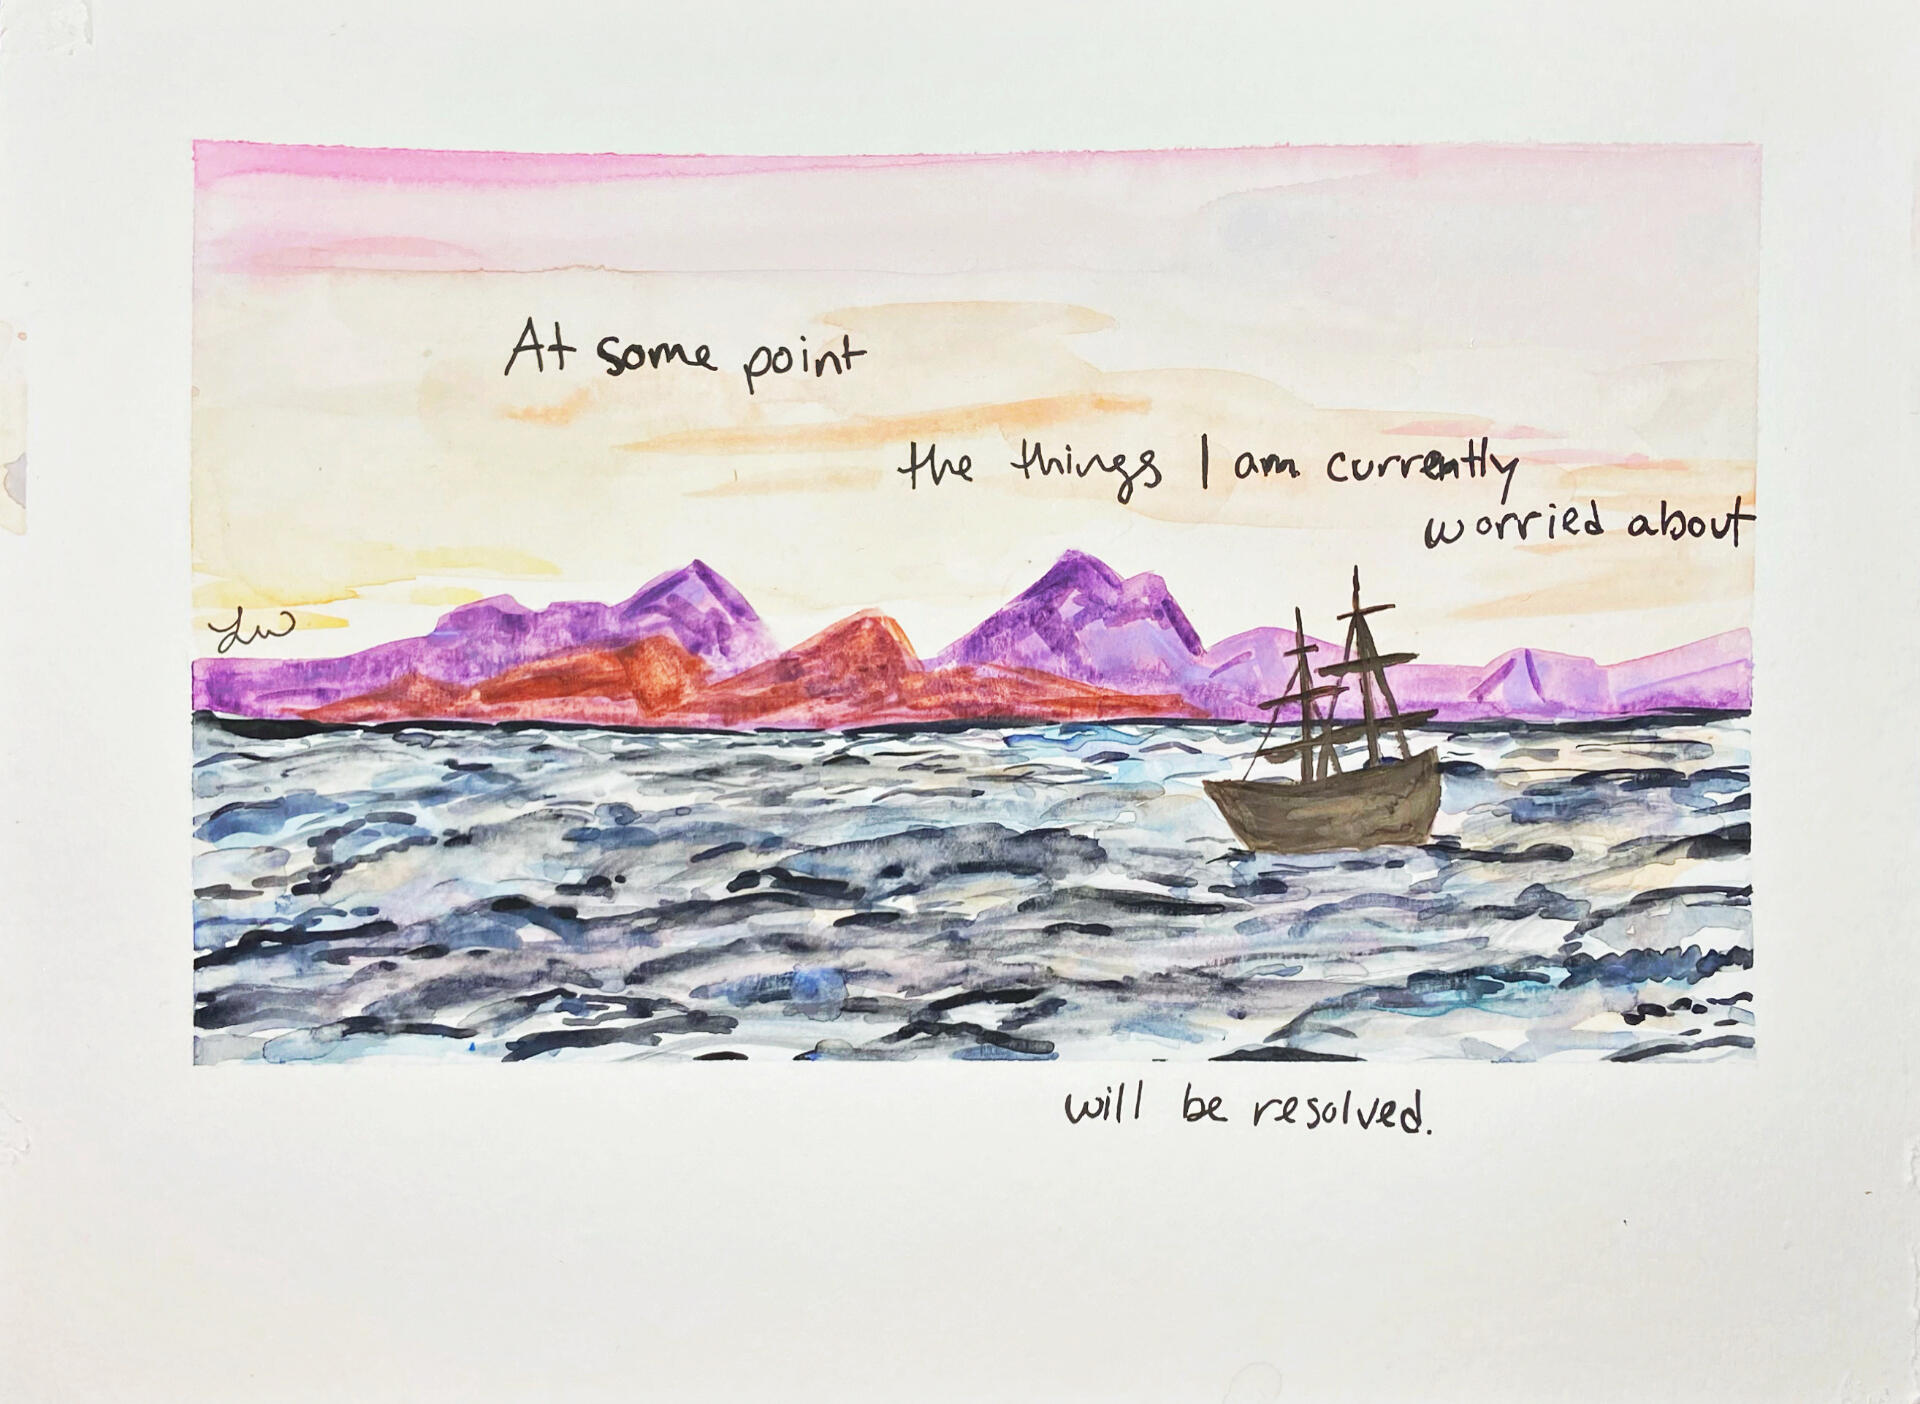 At some point
the things I am currently
worried about
LW
will be resolved.